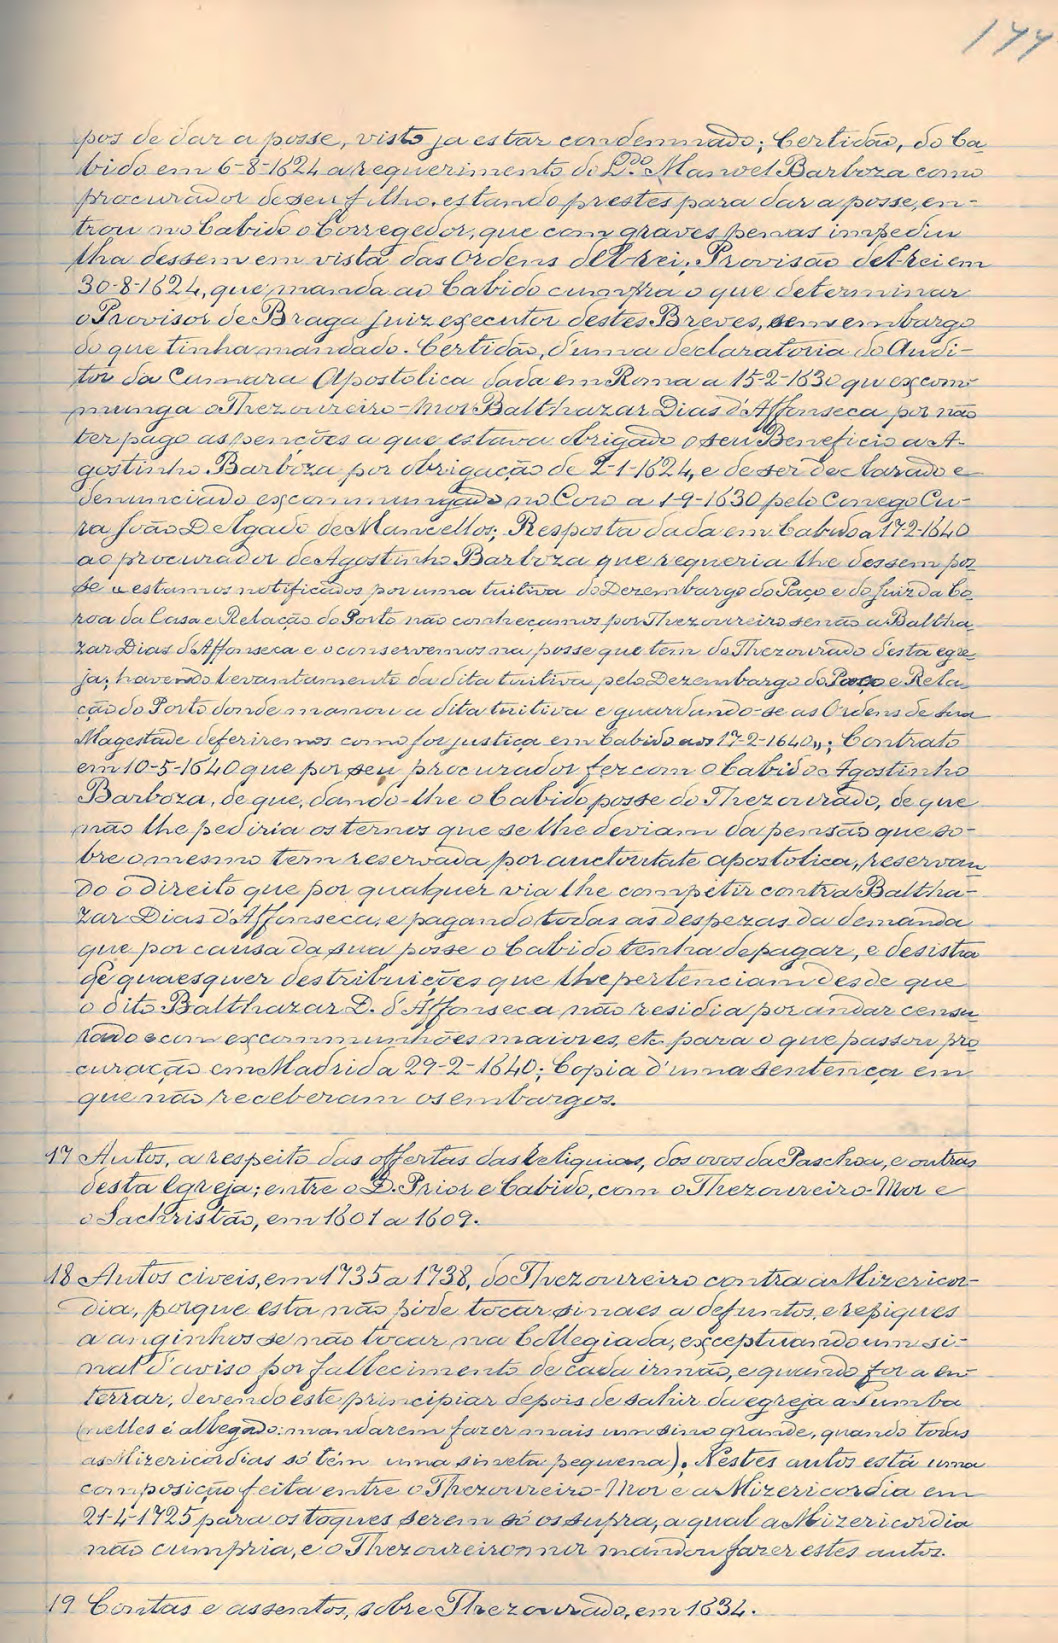 177
pos de dar a posse, visto ja estar condemnado; Certidão, do Ca-
bido em 6-8-1624 a requerimento do L.do Manoel Barboza como
procurador de seu filho, estando prestes para dar a posse, en-
trou no Cabido o Corregedor, que com graves penas impediu
lha dessem em vista das Ordens d'El-rei; Provisão d'El-rei em
30-8-1624, que manda ao Cabido cumpra o que determinar
o Provisor de Braga Juiz executor destes Breves, sem embargo
do que tinha mandado. Certidão, d'uma declaratoria do Audi-
tor da Cumara Apostolica dada em Roma a 15-2-1630 que excom-
munga o Thezoureiro-Mor Balthazar Dias d'Affonseca por não
ter pago as penções a que estava obrigado o seu Beneficio a A-
gostinho Barboza por obrigação de 2-1-1624, e de ser declarado e
denunciado excommungado no Coro a 1-9-1630 pelo Conego Cu-
ra João Delgado de Mancellos; Resposta dada em Cabido a 17-2-1640
ao procurador de Agostinho Barboza que requeria lhe dessem pos-
se "estamos notificados por uma tuitiva do Dezembargo do Paço e do Juiz da Co-
roa da Casa e Relação do Porto não conheçamos por Thezoureiro senão a Baltha-
zar Dias d'Affonseca e o conservemos na posse que tem do Thezourado d'esta egre-
ja; havendo levantamento da dita tuitiva pelo Dezembargo do Paço e Rela-
ção do Porto donde manou a dita tuitiva e guardando-se as Ordens de Sua
Magestade deferiremos como for justiça em Cabido aos 17-2-1640„; Contrato
em 10-5-1640 que por seu procurador fez com o Cabido Agostinho
Barboza, de que, dando-lhe o Cabido posse do Thezourado, de que
não lhe pediria os ternos que se lhe deviam da pensão que so-
bre o mesmo tem reservada por auctoritate apostolica, reservan-
do o direito que por qualquer via lhe competir contra Baltha-
zar Dias d'Affonseca, e pagando todas as despezas da demanda
que por causa da sua posse o Cabido tenha de pagar, e desistia
de quaesquer destribuições que lhe pertenciam desde que
o dito Balthazar D. d'Affonseca não residia por andar censu-
rado e com excommunhões maiores, etc para o que passou pro-
curação em Madrid a 29-2-1640; Copia d'uma sentença em
que não receberam os embargos.
17 Autos, a respeito das offertas das Reliquias, dos ovos da Paschoa, e outras
desta Egreja; entre o D. Prior e Cabido, com o Thezoureiro-Mor e
o Sachristão, em 1601 a 1609.
18 Autos civeis, em 1735 a 1738, do Thezoureiro contra a Mizericor-
dia, porque esta não pode tocar sinaes a defuntos, e repiques
a anginhos se não tocar na Collegiada, exceptuando um si-
nal d'aviso por fallecimento de cada irmão, e quando for a en-
terrar, devendo este principiar depois de sahir da egreja a Tumba
(nelles é allegado: mandarem fazer mais um sino grande, quando todas
as Mizericordias só têm uma sineta pequena). Nestes autos está uma
composição feita entre o Thezoureiro-Mor e a Mizericordia em
21-4-1725 para os toques serem só os supra, a qual a Mizericordia
não cumpria, e o Thezoureiro mor mandou fazer estes autos.
19 Contas e assentos, sobre Thezourado, em 1634.